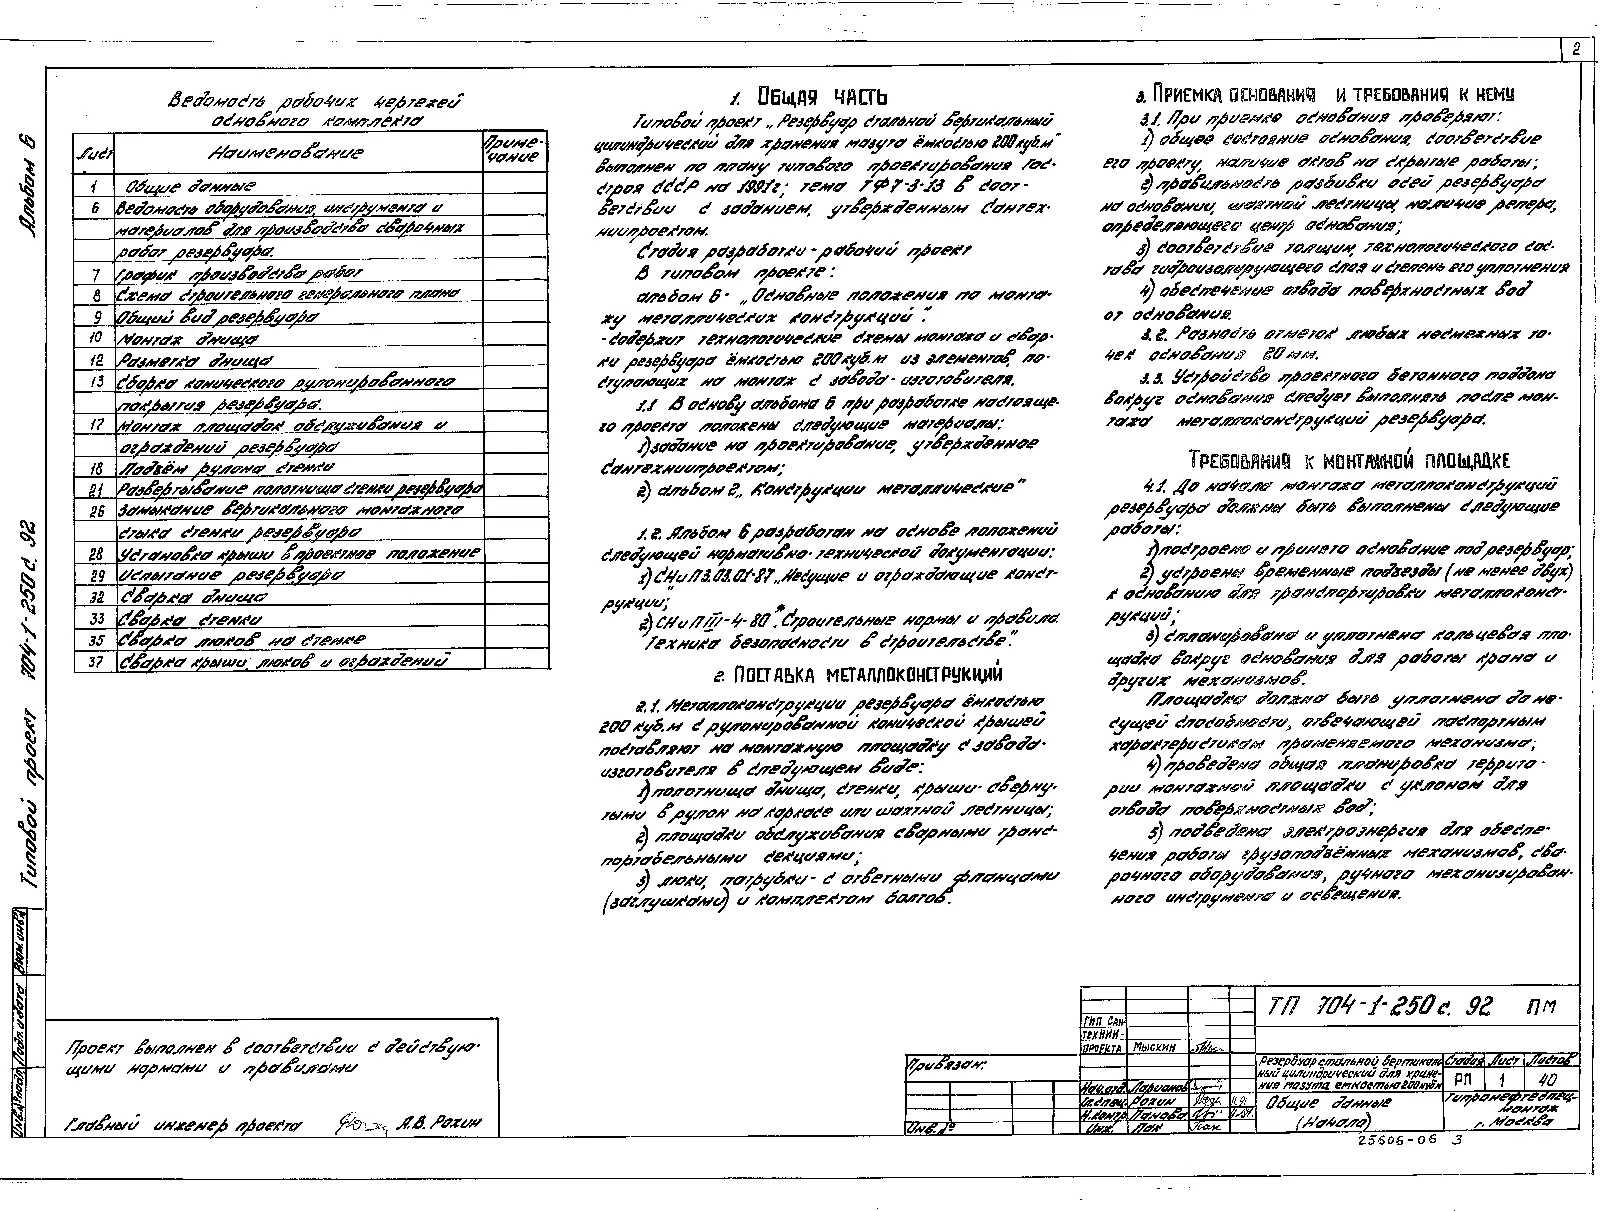 2
Альбом 6
Типовой проект 704-1-250с. 92
Ведомость рабочих чертежей
основного комплекта
Лист Наименование Приме-
чание
1 Общие данные
6 Ведомость оборудования, инструмента и
материалов для производства сварочных
работ резервуара.
7 График производства работ
8 Схема строительного генерального плана
9 Общий вид резервуара
10 Монтаж днища
12 Разметка днища
13 Сборка конического рулонированного
покрытия резервуара.
17 Монтаж площадок обслуживания и
ограждений резервуара
18 Подъём рулона стенки
21 Развертывание полотнища стенки резервуара
26 Замыкание вертикального монтажного
стыка стенки резервуара
28 Установка крыши в проектное положение
29 Испытание резервуара
32 Сварка днища
33 Сварка стенки
35 Сварка люков на стенке
37 Сварка крыши, люков и ограждений
Проект выполнен в соответствии с действую-
щими нормами и правилами
Главный инженер проекта А.В. Рохин
1. Общая часть
Типовой проект „Резервуар стальной вертикальный
цилиндрический для хранения мазута ёмкостью 200 куб.м"
выполнен по плану типового проектирования Гос-
строя СССР на 1991г; тема ТФ7-3-13 в соот-
ветствии с заданием, утвержденным Сантех-
ниипроектом.
Стадия разработки - рабочий проект
В типовом проекте:
альбом 6 - „Основные положения по монта-
жу металлических конструкций".
- содержит технологические схемы монтажа и свар-
ки резервуара ёмкостью 200 куб.м из элементов, по-
ступающих на монтаж с завода-изготовителя.
1.1 В основу альбома 6 при разработке настояще-
го проекта положены следующие материалы:
1) задание на проектирование, утвержденное
Сантехниипроектом;
2) альбом 2 „Конструкции металлические"
1.2. Альбом 6 разработан на основе положений
следующей нормативно-технической документации:
1) СНиП 3.03.01-87 „Несущие и ограждающие конст-
рукции";
2) СНиП III-4-80*. „Строительные нормы и правила.
Техника безопасности в строительстве".
2. Поставка металлоконструкций
2.1. Металлоконструкции резервуара ёмкостью
200 куб.м с рулонированной конической крышей
поставляют на монтажную площадку с завода-
изготовителя в следующем виде:
1) полотнища днища, стенки, крыши - сверну-
тыми в рулон на каркасе или шахтной лестницы;
2) площадки обслуживания сварными транс-
портабельными секциями;
3) люки, патрубки - с ответными фланцами
(заглушками) и комплектом болтов.
3. Приемка основания и требования к нему
3.1. При приемке основания проверяют:
1) общее состояние основания, соответствие
его проекту, наличие актов на скрытые работы;
2) правильность разбивки осей резервуара
на основании, шахтной лестницы, наличие репера,
определяющего центр основания;
3) соответствие толщин, технологического сос-
тава гидроизолирующего слоя и степень его уплотнения
4) обеспечение отвода поверхностных вод
от основания.
3.2. Разность отметок любых несмежных то-
чек основания 20 мм.
3.3. Устройство проектного бетонного поддона
вокруг основания следует выполнять после мон-
тажа металлоконструкций резервуара.
Требования к монтажной площадке
4.1. До начала монтажа металлоконструкций
резервуара должны быть выполнены следующие
работы:
1) построено и принято основание под резервуар;
2) устроены временные подъезды (не менее двух)
к основанию для транспортировки металлоконст-
рукций;
3) спланирована и уплотнена кольцевая пло-
щадка вокруг основания для работы крана и
других механизмов.
Площадка должна быть уплотнена до не-
сущей способности, отвечающей паспортным
характеристикам применяемого механизма;
4) проведена общая планировка террито-
рии монтажной площадки с уклоном для
отвода поверхностных вод;
5) подведена электроэнергия для обеспе-
чения работы грузоподъёмных механизмов, сва-
рочного оборудования, ручного механизирован-
ного инструмента и освещения.
Взам.инв.№
Подп. и дата
Инв.№ подл.
Привязан:
Инв.№
ГИП Сан-
технии-
проекта Мыскин
Нач.отд. Ларионов
Гл.спец. Рохин
Н.контр. Панова
Инж. Пак
ТП 704-1-250с. 92 ПМ
Резервуар стальной вертикаль-
ный цилиндрический для хране-
ния мазута емкостью 200 куб.м
Стадия Лист Листов
РП 1 40
Общие данные
(Начало)
Гипронефтеспец-
монтаж
г. Москва
25606-06 3